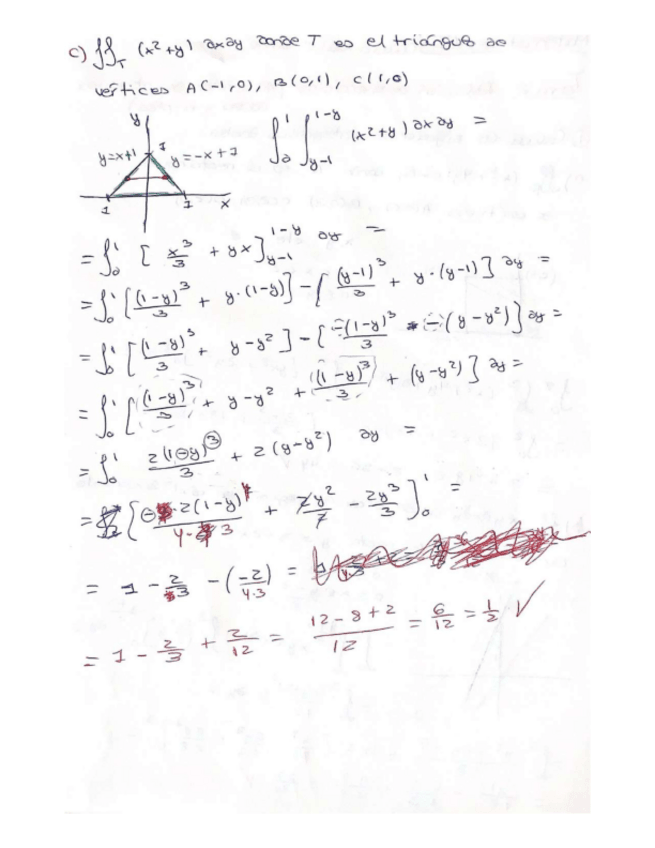 c) ∬_T (x² + y) dx dy donde T es el triángulo de
vértices A(-1,0), B(0,1), C(1,0)
y
1
y=x+1
y=-x+1
1
1
x
∫₀¹ ∫_{y-1}^{1-y} (x²+y) dx dy =
= ∫₀¹ [x³/3 + yx]_{y-1}^{1-y} dy =
= ∫₀¹ [(1-y)³/3 + y·(1-y)] - [(y-1)³/3 + y·(y-1)] dy =
= ∫₀¹ [(1-y)³/3 + y-y²] - [-(1-y)³/3 -(y-y²)] dy =
= ∫₀¹ [(1-y)³/3 + y-y² + (1-y)³/3 + (y-y²)] dy =
= ∫₀¹ 2(1-y)³/3 + 2(y-y²) dy =
= [-2(1-y)⁴/4·3 + 2y²/2 - 2y³/3]₀¹ =
= 1 - 2/3 - (-2/4·3) =
= 1 - 2/3 + 2/12 = (12-8+2)/12 = 6/12 = 1/2 ✓